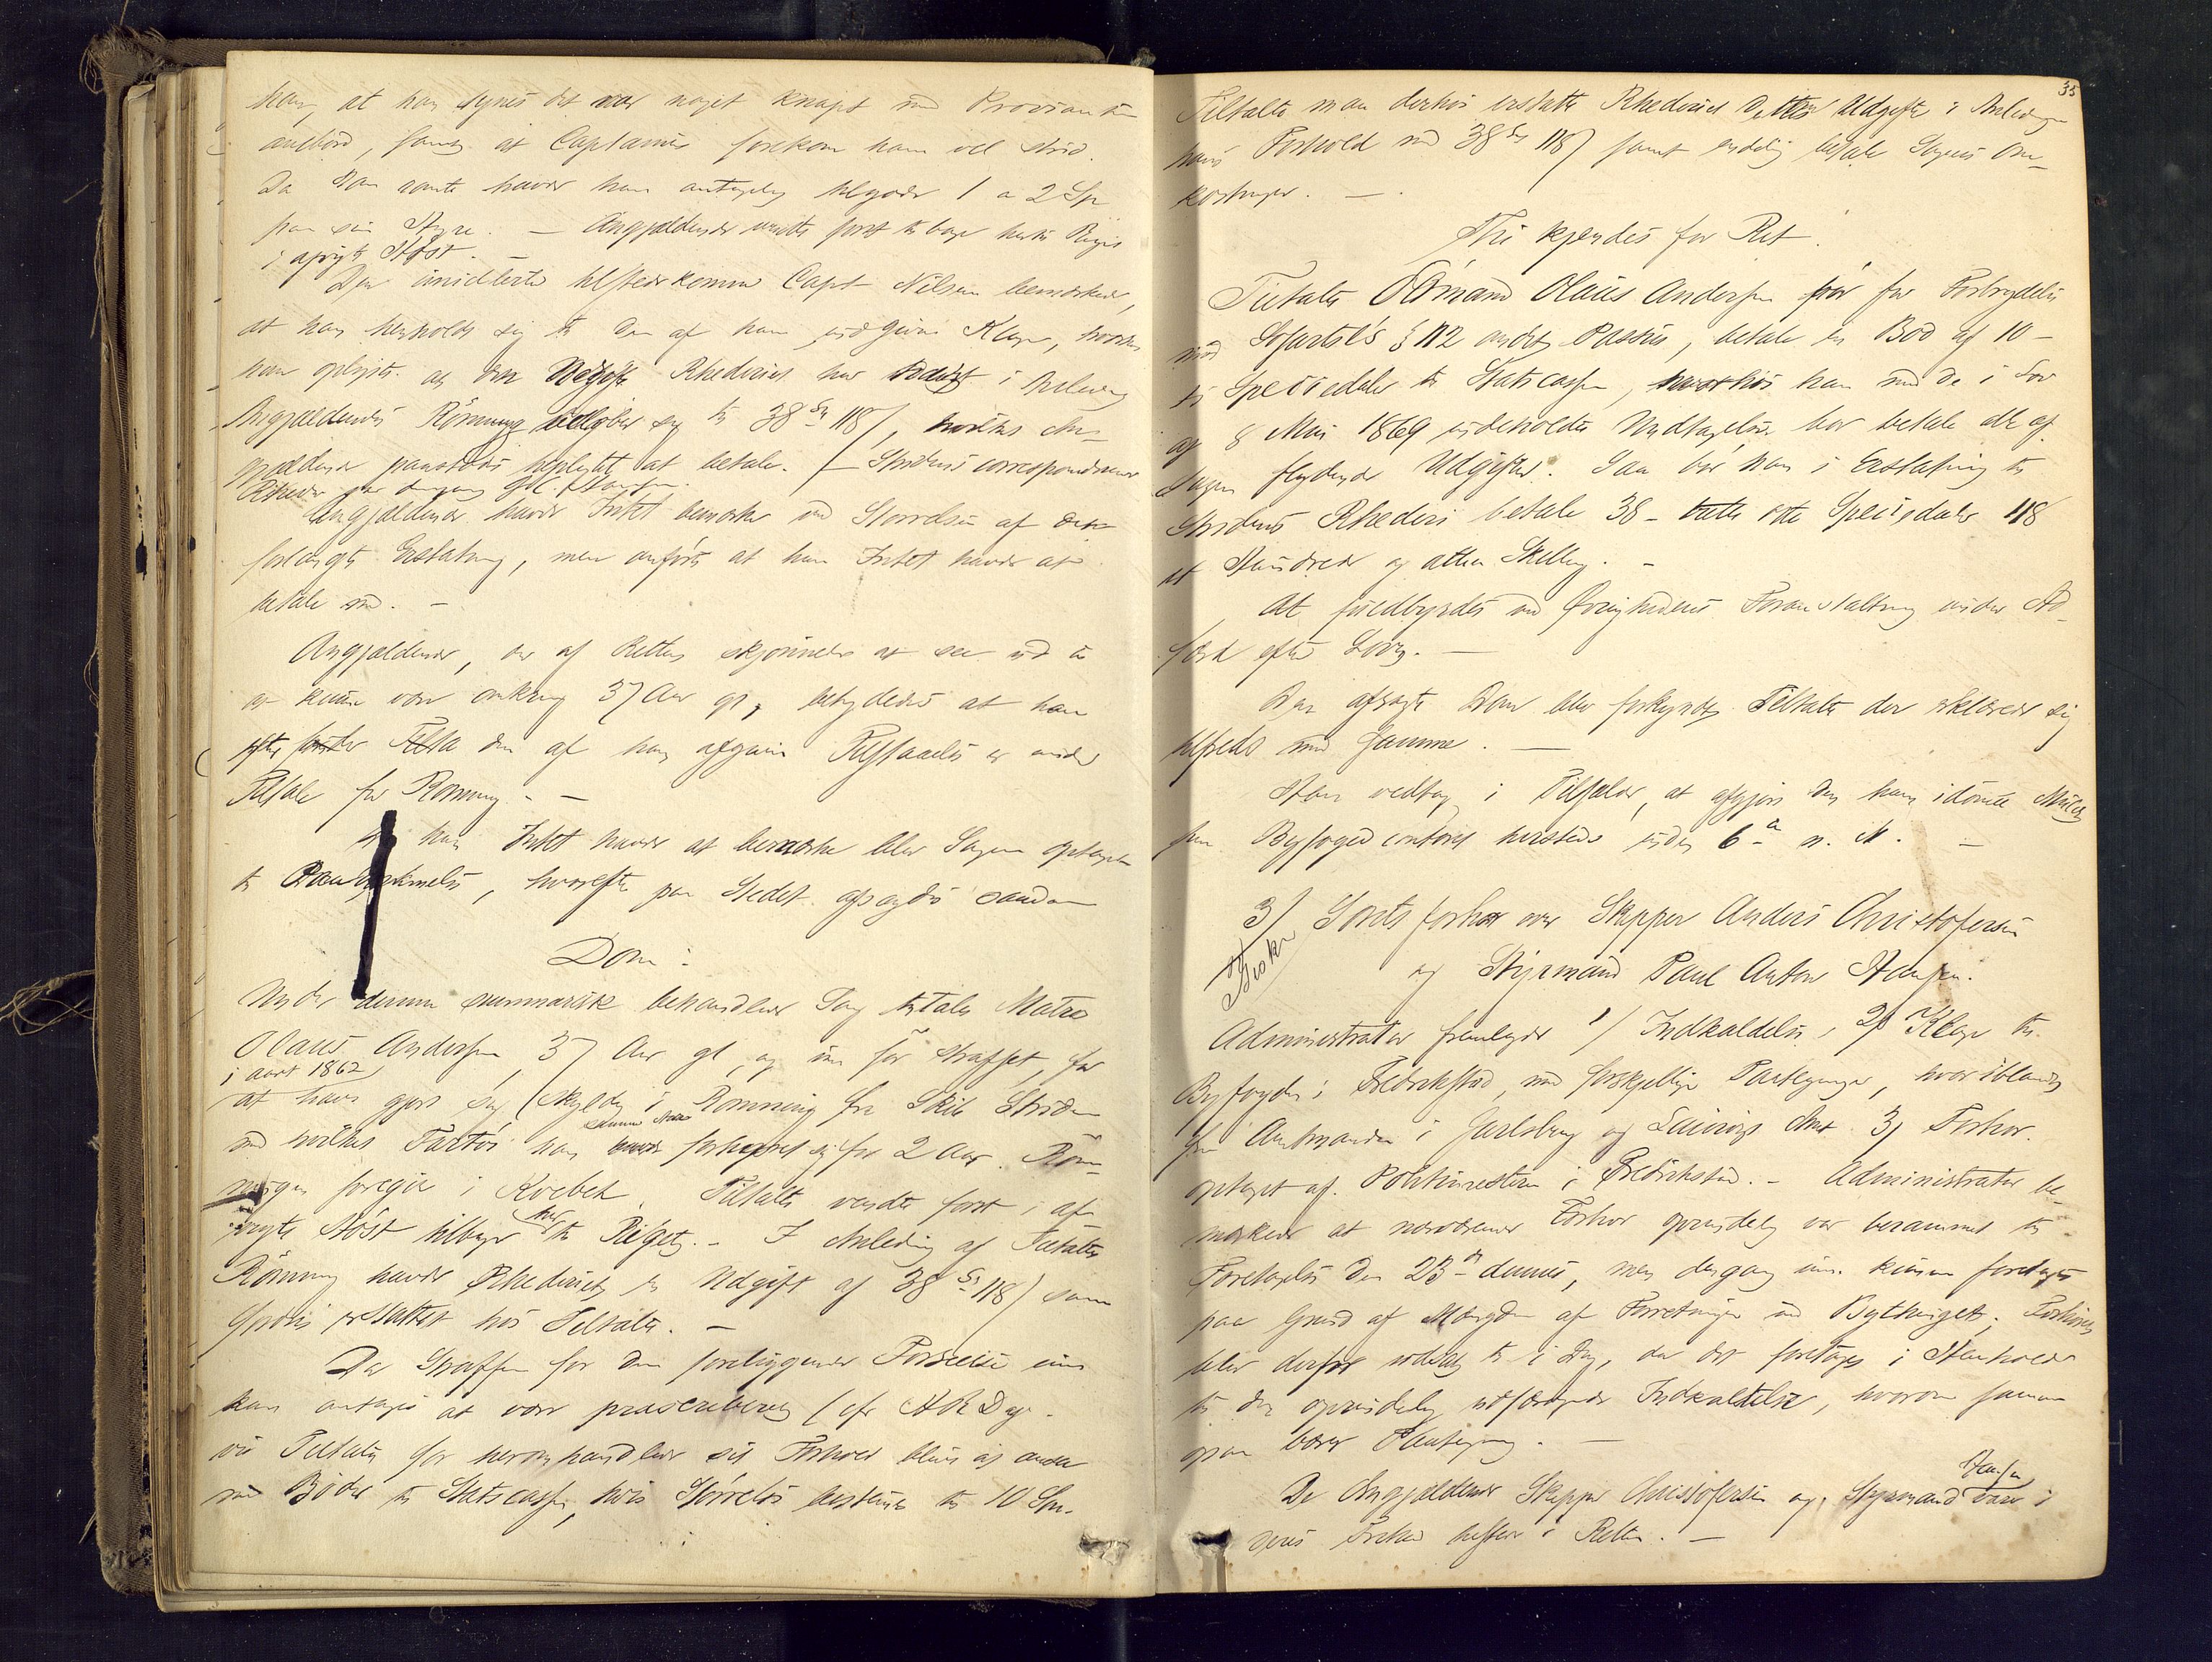 han, at han synes det var noget knapt med Provianten
ombord, samt at Captainen forekom ham vel strid.
Da han rømte havde han antagelig tilgode 1 a 2 Sp
paa sin Hyre. — Angjældende vendte først tilbage hertil Riget
i afvigte Høst. —
Den imidlertid tilstedekomne Capt Nilsen bemærkede,
at han henholdt sig til den af ham indgivne Klage, hvorhos
han oplyste at den Udgift Rhederiet har havt i Anledning
Angjældendes Rømning beløber sig til 38 Sp 118 /, hvilke An-
gjældende paastodes tilpligtet at betale. — Stridens correspondrende
Rheder
Angjældende havde Intet bemærke ved Størrelsen af den
forlangte Erstatning, men anførte at han Intet havde at
betale med. —
Angjældende, der af Retten skjønnedes at see ud til
at kunne være omkring 37 Aar gl, betydedes at han
efter den af ham afgivne Tilstaaelse er under
Tiltale for Rømning. —
Da han Intet havde at bemærke blev Sagen optaget
til Paakjendelse, hvorefter paa Stedet afsagdes saadan
Dom:
Under denne summarisk behandlede Sag tiltales Matros
Olaus Andersen, 37 Aar gl, og ei før straffet, for
i Aaret 1862
at have gjort sig skyldig i Rømning fra Skib Striden
med hvilket Fartøi han havde forhyret sig for 2 Aar. Røm-
ningen foregik i Qvebek. Tiltalte vendte først i af-
vigte Høst tilbage her til Riget. — I Anledning af Tiltaltes
Rømning havde Rhederiet en Udgift af 38 Sp 118 / som
fordres erstattet hos Tiltalte. —
Da Straffen for den foreliggende Forseelse ei
kan antages at være præscriberet (cfr
vil Tiltalte for heromhandlede sit Forhold blive at ansee
med Bøder til Statscassen, hvis Størrelse bestemmes til 10 Spd.
35
Tiltalte maa derhos erstatte Rhederiet dettes Udgifter i Anledning
hans Forhold med 38 Sp 118 / samt endelig betale Sagens Om-
kostninger. —
Thi kjendes for Ret:
Tiltalte Sømand Olaus Andersen bør for Forbrydelse
mod Søfartsl's § 112 andet Passus, betale en Bod af 10 —
ti Speciedaler til Statscassen, hvorhos han med de i Lov
af 8 Mai 1869 indeholdte Undtagelser bør betale alle af
Sagen flydende Udgifter. Saa bør han i Erstatning til
Stridens Rhederi betale 38 — tretti otte Speciedaler 118
et Hundrede og atten Skilling. —
At fuldbyrdes ved Øvrighedens Foranstaltning under Ad-
færd efter Loven. —
Den afsagte Dom blev forkyndt Tiltalte der erklærede sig
tilfreds med samme. —
Han vedtog i Tilfælde, at afgjøre den ham idømte Mulct
paa Byfogedcontoret hersteds inden 6 a n. M. —
3/ Søretsforhør over Skipper Anders Christofersen
og Styrmand Paul Anton Hansen.
Administrator fremlagde 1/ Indkaldelse, 2/ Klage til
Byfogden i Fredrikstad, med forskjellige Paategninger, hvoriblandt
fra Amtmanden i Jarlsberg og Laurvigs Amt 3/ Forhør
optaget af Politimesteren i Fredrikstad. — Administrator be-
mærkede at nærværende Forhør oprindelig var berammet til
Foretagelse den 23 de dennes, men dengang ei kunne foretages
paa Grund af Mængden af Forretninger ved Bythinget; Forhøret
blev derfor udsat til i Dag, da det foretages i Henhold
til den oprindelig udfærdigede Indkaldelse, hvorom samme
ogsaa bærer Paategning. —
De Angjældende Skipper Christofersen og Styrmand Hansen vare i
deres Frihed tilstede i Retten. —